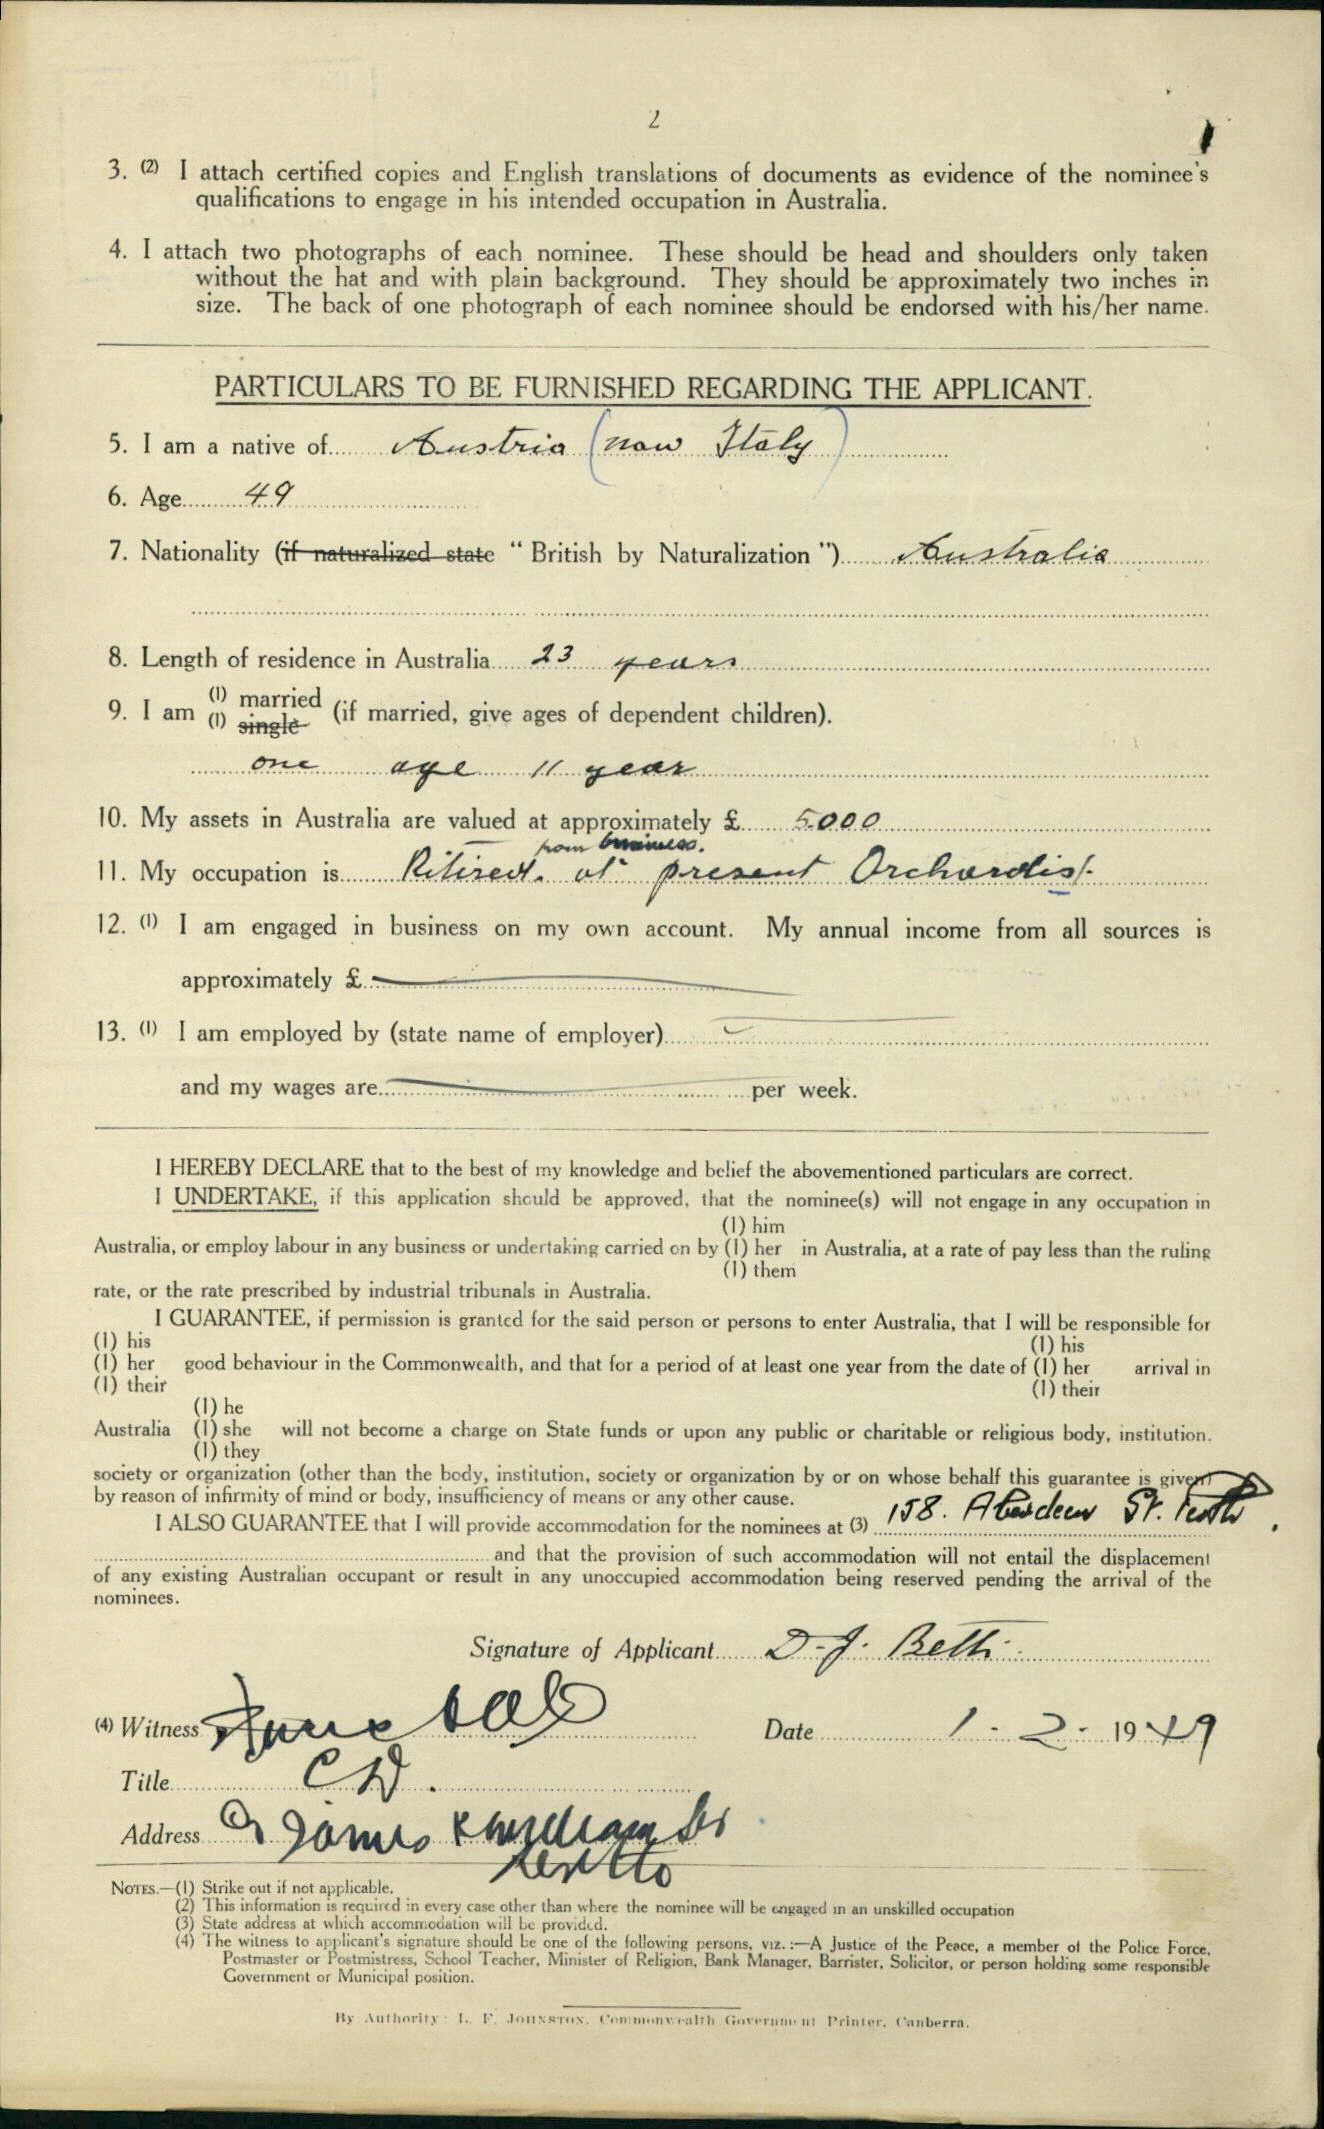 2
3. (2) I attach certified copies and English translations of documents as evidence of the nominee's
qualifications to engage in his intended occupation in Australia.
4. I attach two photographs of each nominee. These should be head and shoulders only taken
without the hat and with plain background. They should be approximately two inches in
size. The back of one photograph of each nominee should be endorsed with his/her name.
PARTICULARS TO BE FURNISHED REGARDING THE APPLICANT.
5. I am a native of Austria (now Italy)
6. Age 49
7. Nationality (if naturalized state "British by Naturalization") Australia
8. Length of residence in Australia 23 years
9. I am (1) married (if married, give ages of dependent children).
(1) single
one age 11 year
10. My assets in Australia are valued at approximately £ 5000
from business.
11. My occupation is Ritired. at present Orchardist.
12. (1) I am engaged in business on my own account. My annual income from all sources is
approximately £
13. (1) I am employed by (state name of employer)
and my wages are per week.
I HEREBY DECLARE that to the best of my knowledge and belief the abovementioned particulars are correct.
I UNDERTAKE, if this application should be approved, that the nominee(s) will not engage in any occupation in
(1) him
Australia, or employ labour in any business or undertaking carried on by (1) her in Australia, at a rate of pay less than the ruling
(1) them
rate, or the rate prescribed by industrial tribunals in Australia.
I GUARANTEE, if permission is granted for the said person or persons to enter Australia, that I will be responsible for
(1) his (1) his
(1) her good behaviour in the Commonwealth, and that for a period of at least one year from the date of (1) her arrival in
(1) their (1) their
(1) he
Australia (1) she will not become a charge on State funds or upon any public or charitable or religious body, institution.
(1) they
society or organization (other than the body, institution, society or organization by or on whose behalf this guarantee is given)
by reason of infirmity of mind or body, insufficiency of means or any other cause.
I ALSO GUARANTEE that I will provide accommodation for the nominees at (3) 158. Aberdeen St. Perth
and that the provision of such accommodation will not entail the displacement
of any existing Australian occupant or result in any unoccupied accommodation being reserved pending the arrival of the
nominees.
Signature of Applicant D. J. Betti
(4) Witness Date 1 - 2 - 1949
Title
Address James & William Sts
NOTES.—(1) Strike out if not applicable.
(2) This information is required in every case other than where the nominee will be engaged in an unskilled occupation
(3) State address at which accommodation will be provided.
(4) The witness to applicant's signature should be one of the following persons, viz.:—A Justice of the Peace, a member of the Police Force,
Postmaster or Postmistress, School Teacher, Minister of Religion, Bank Manager, Barrister, Solicitor, or person holding some responsible
Government or Municipal position.
By Authority: L. F. JOHNSTON, Commonwealth Government Printer, Canberra.